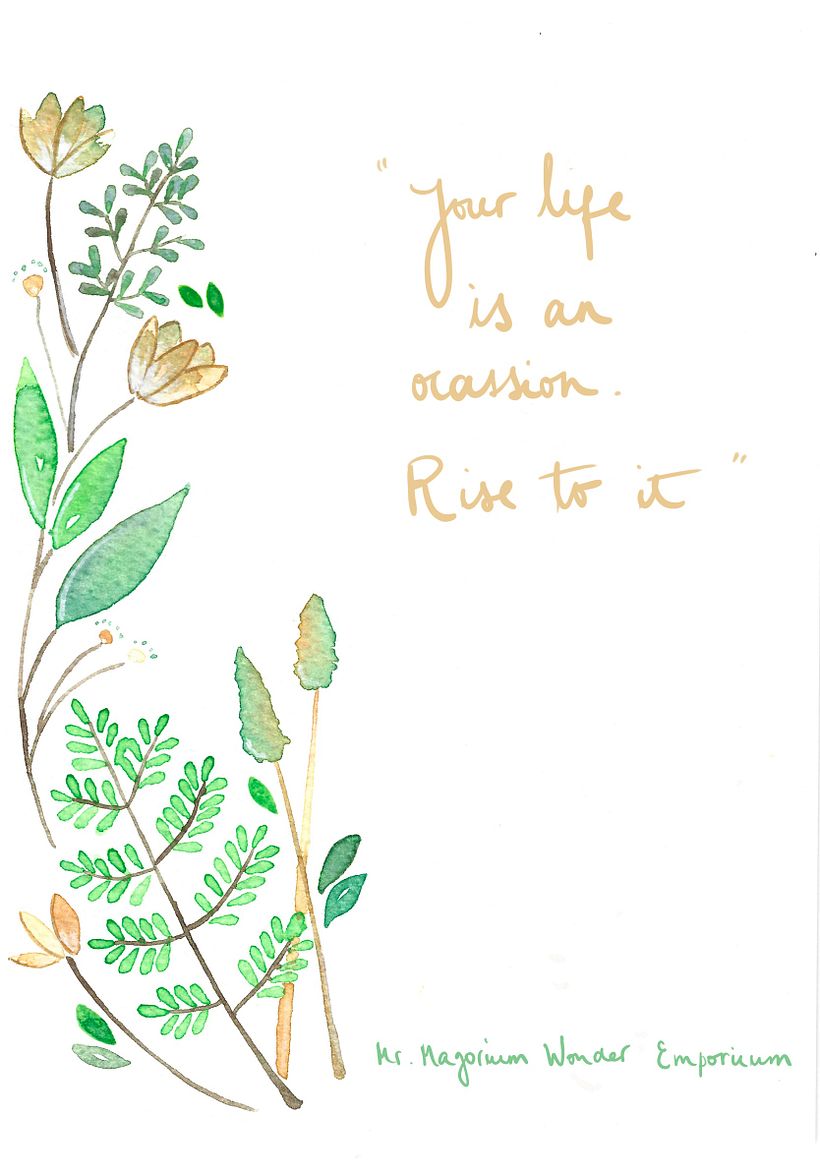 "Your life
is an
ocassion.
Rise to it"
Mr. Magorium Wonder Emporium